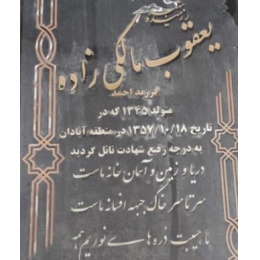 رزمنده
یعقوب مالکی زاده
فرزند احمد
متولد ۱۳۴۵ که در
تاریخ ۱۳۵۷/۱۰/۱۸ در منطقه آبادان
به درجه رفیع شهادت نائل گردید
دریا و زمین و آسمان خانه ماست
سرتاسر خاک جبهه افسانه ماست
با هیبت ذره های نوریم همه